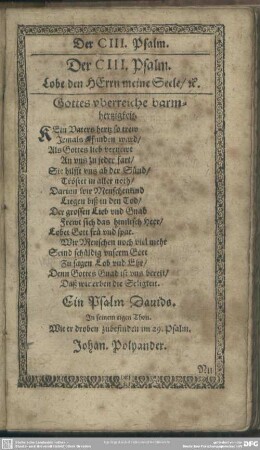 Der CIII. Psalm.
Der CIII. Psalm.
Lobe den HErrn meine Seele/ ꝛc.
Gottes vberreiche barm-
hertzigkeit.
KEin Vaters hertz so trew
Jemals erfunden ward/
Als Gottes lieb vernewt
An vns zu jeder fart/
Sie hilfft vns ab der Sünd/
Tröstet in aller noth/
Darinn wir Menschenkind
Liegen biß in den Tod/
Der grossen Lieb vnd Gnad
Frewt sich das himlisch Heer/
Lobet Gott frü vnd spat.
Wir Menschen noch viel mehr
Seind schüldig vnserm Gott
Zu sagen Lob vnd Ehr/
Denn Gottes Gnad ist vns bereit/
Daß wir erben die Seligkeit.
Ein Psalm Dauids.
In seinem eigen Thon.
Wie er droben zubefinden im 29. Psalm.
Johan. Polyander.
Nu